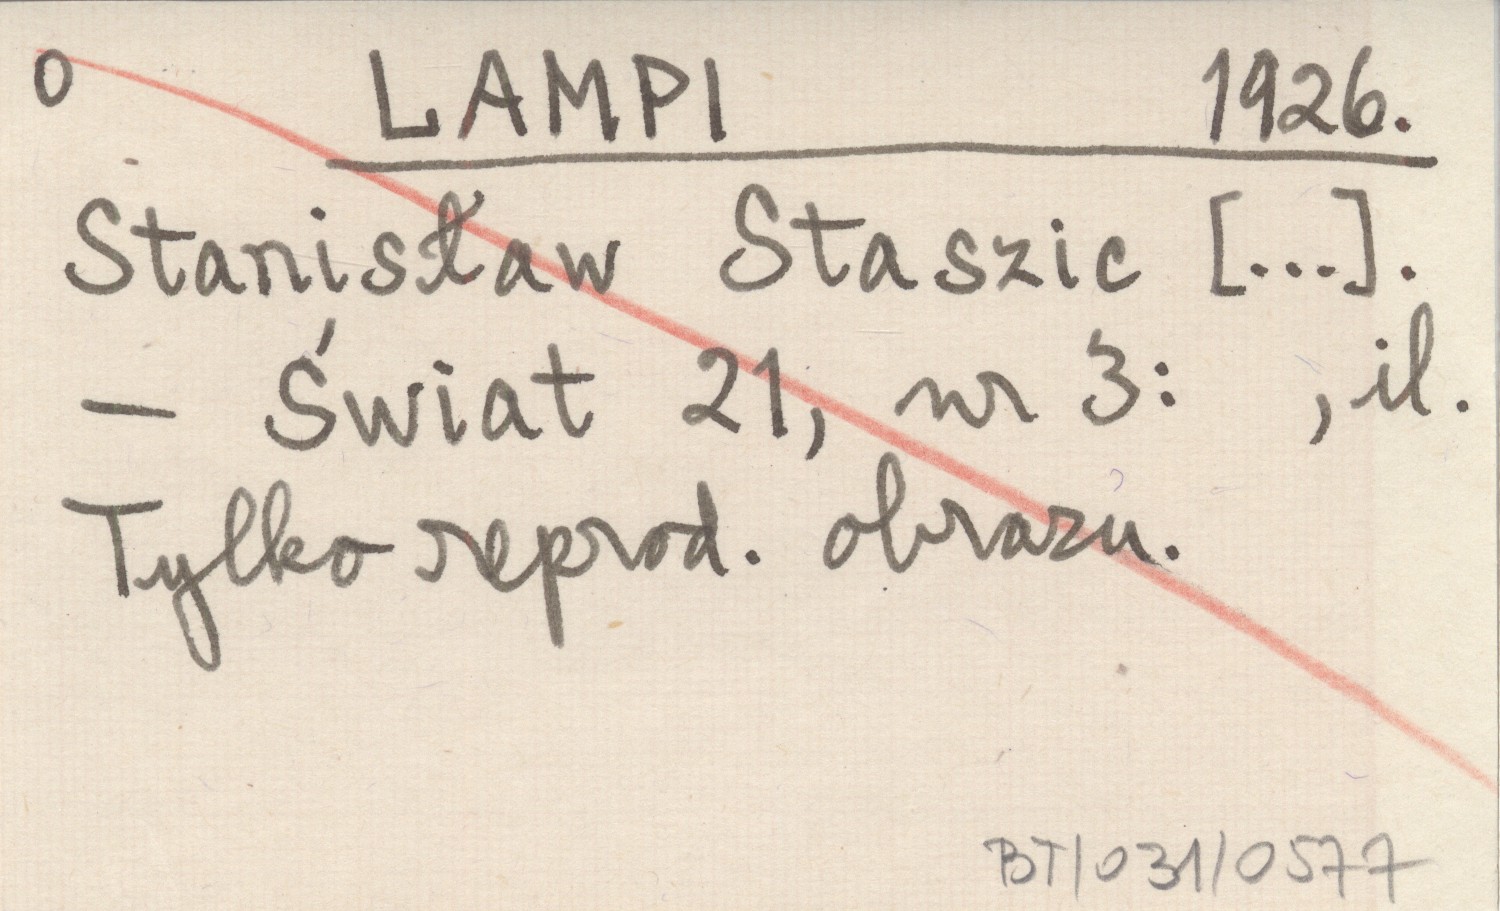 0 LAMPI 1926.
Stanisław Staszic [...].
– Świat 21, nr 3: , il.
Tylko reprod. obrazu.
BT/031/0577